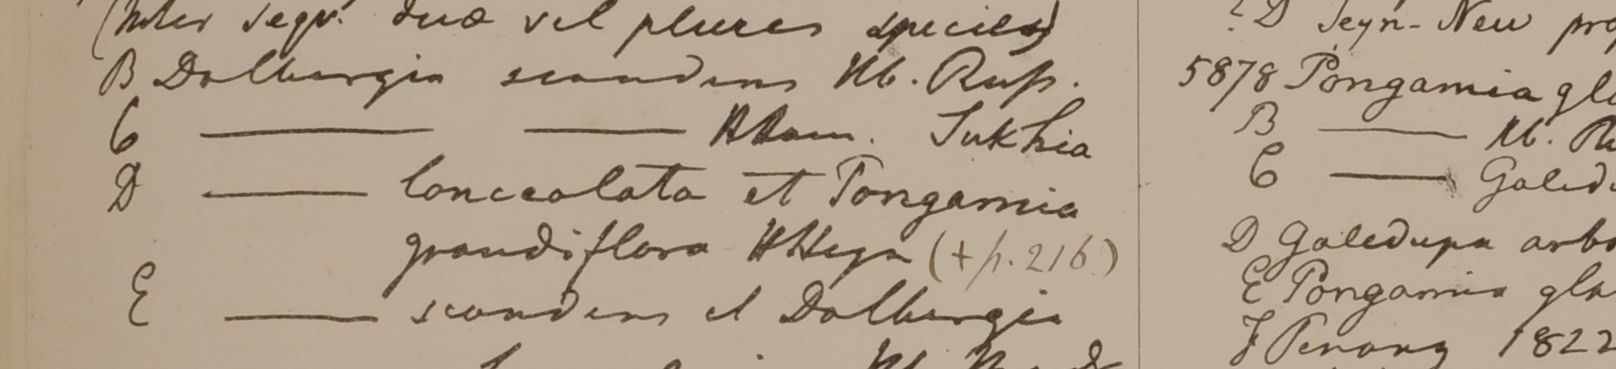 (Inter seqv. duæ vel plures species)
B Dalbergia scandens Hb. Rusp.
C ——— ——— HHam. Sukhia
D ——— lanceolata et Pongamia
grandiflora HHeyn (+p. 216)
E ——— scandens et Dalbergia
? D Heyn-Neu
5878 Pongamia gla
B ——— Hb.
C ——— Galedu
D Galedupa arbo
E Pongamia gla
F Penang 1822